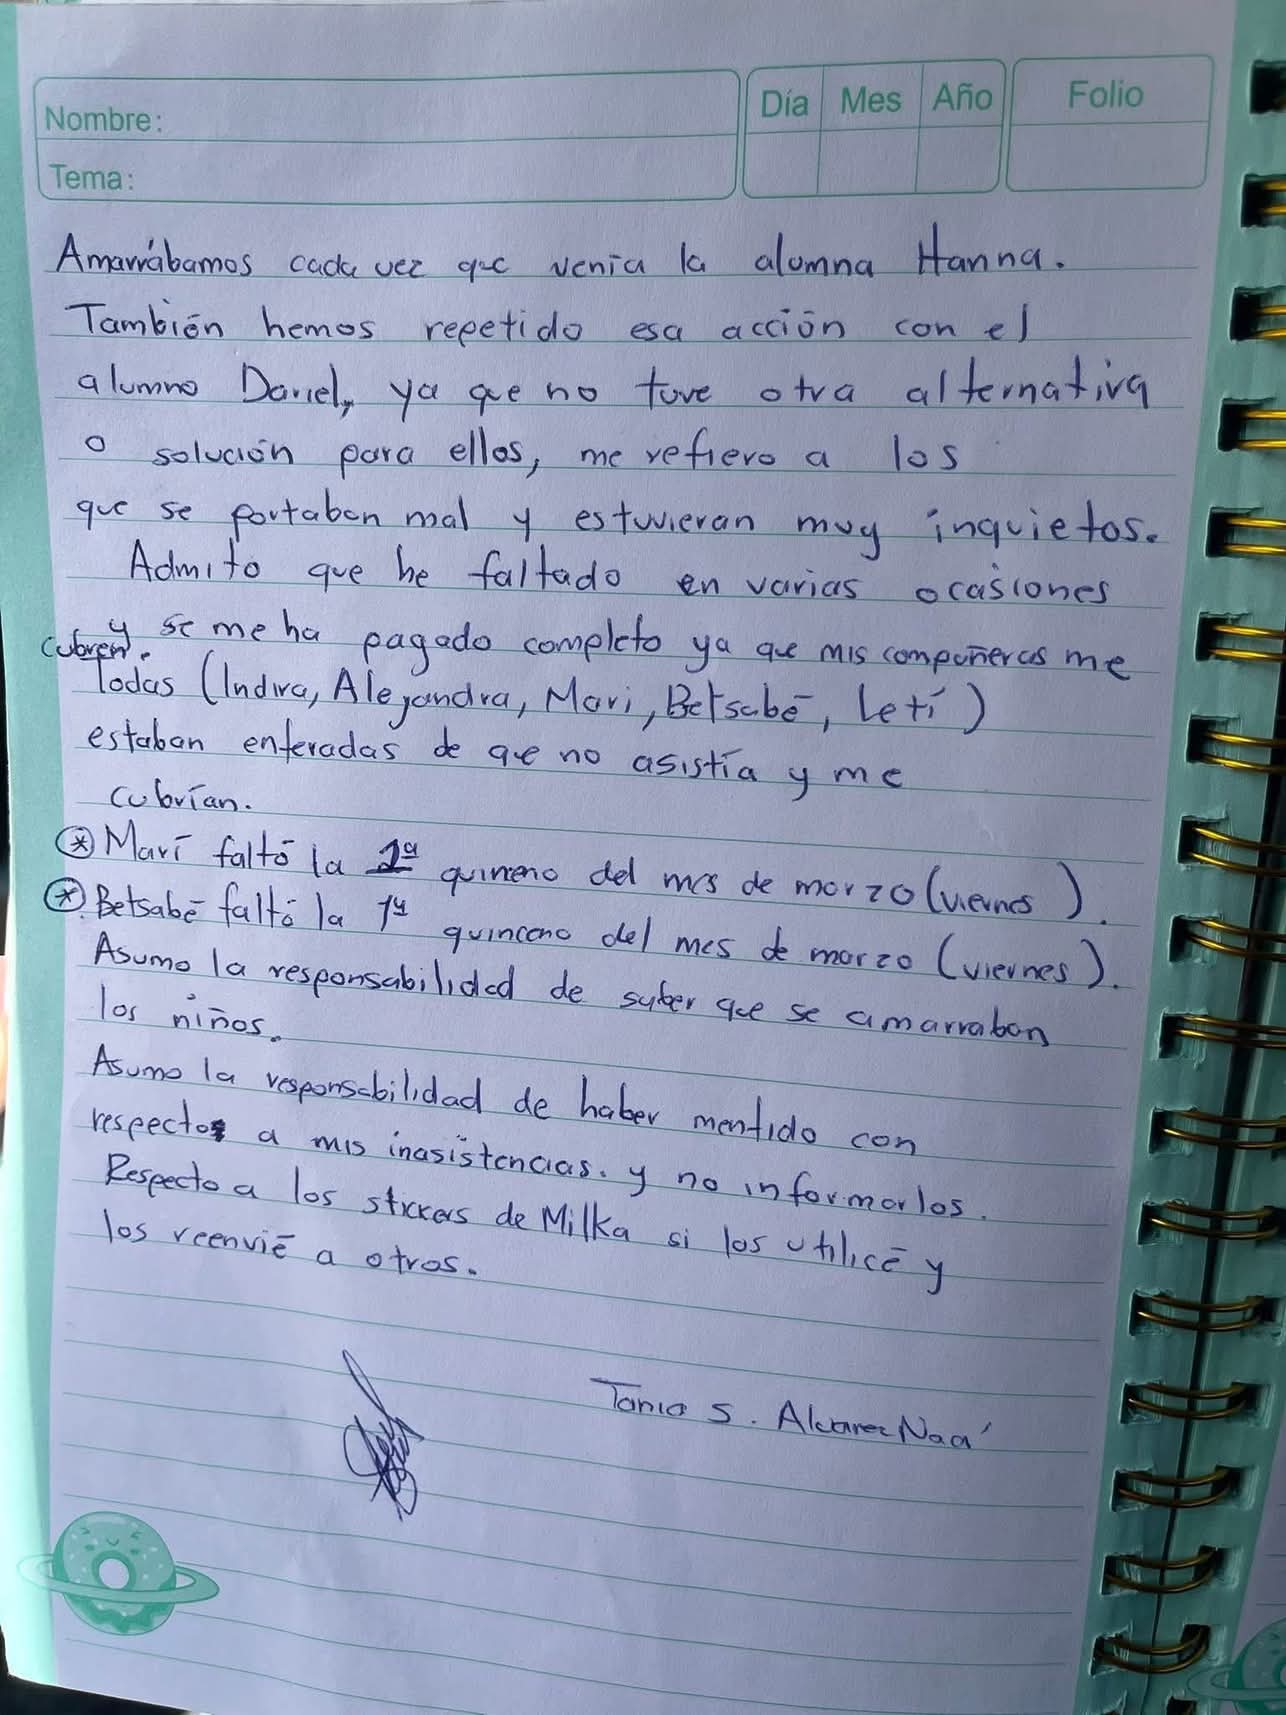 Nombre:
Tema:
Día Mes Año
Folio
Amarrábamos cada vez que venía la alumna Hanna.
También hemos repetido esa acción con el
alumno Daniel, ya que no tuve otra alternativa
o solución para ellos, me refiero a los
que se portaban mal y estuvieran muy inquietos.
Admito que he faltado en varias ocasiones
y se me ha pagado completo ya que mis compañeras me
cubren.
Todas (Indira, Alejandra, Mari, Betsabé, Leti)
estaban enteradas de que no asistía y me
cubrían.
* Marí faltó la 2ª quinceno del mes de marzo (viernes).
* Betsabé faltó la 1ª quinceno del mes de marzo (viernes).
Asumo la responsabilidad de saber que se amarraban
los niños.
Asumo la responsabilidad de haber mentido con
respecto a mis inasistencias. y no informarlos.
Respecto a los stickers de Milka si los utilicé y
los reenvié a otros.
Tania S. Alvarez Naa